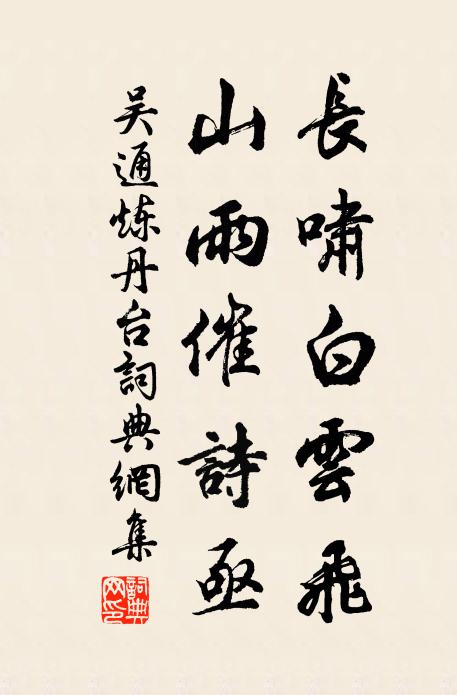 長嘯白雲飛
山雨催詩亟
吳通炼丹台詞典網集
詞典網印